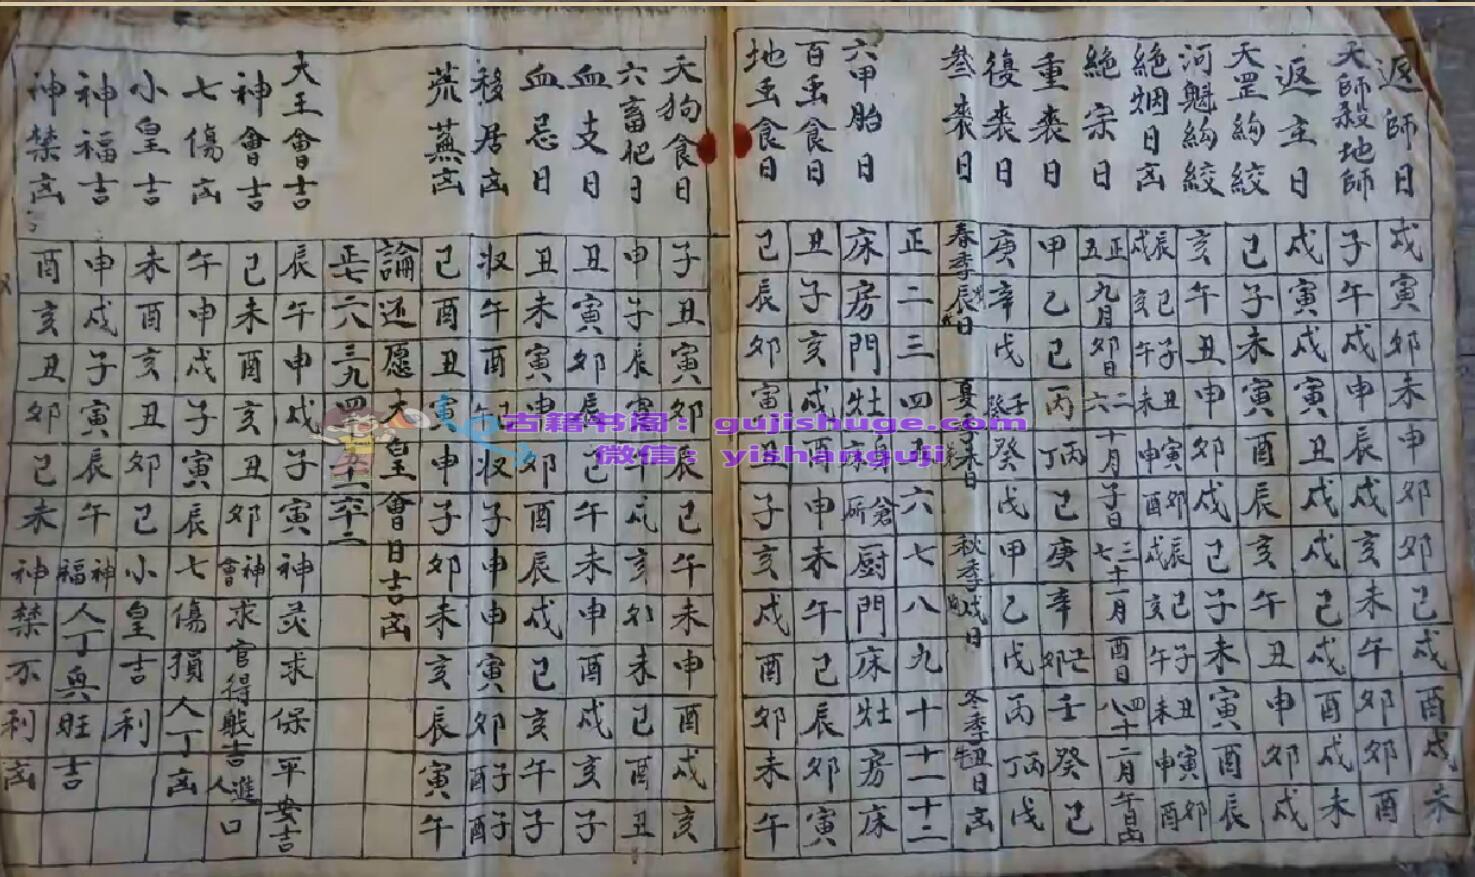 返師日 戌寅卯未申卯卯己戌酉戌未
天師殺地師 子午戌申辰戌亥未午卯卯酉
返主日 戌寅戌寅丑戌戌己戌酉戌未
天罡絢絞 己子未寅酉辰亥午丑申卯戌
河魁絢絞 亥午丑申卯戌己子未寅酉辰
絕烟日凶 辰戌己亥子午丑未寅申卯酉辰戌己亥子午丑未寅申卯酉
絕宗日 正五九月卯日二六十月子日三七十一月酉日四八十二月午日凶
重喪日 甲乙己丙丙丁己庚辛壬癸己
復喪日 庚辛戊壬癸癸戊甲乙戊丙丙丁戊
叄喪日 春季辰日夏季未日秋季戌日冬季丑日凶
正二三四五六七八九十十一十二
六甲胎日 床房門灶床倉厨門床灶房床
百虫食日 丑子亥戌酉申未午己辰卯寅
地虫食日 己辰卯寅丑子亥戌酉卯未午
天狗食日 子丑寅卯辰己午未申酉戌亥
六畜肥日 申子辰寅午戌亥卯未己酉丑
血支日 丑寅卯辰己午未申酉戌亥子
血忌日 丑未寅申卯酉辰戌己亥午子
移居凶 午酉子申申寅卯子酉子酉
荒蕪凶 己酉丑寅申子卯未亥辰寅午
論还愿大皇會日吉凶
正七二八三九四十
天王會吉 辰午申戌子寅神灵求保平安吉
神會吉 己未酉亥丑卯神會求官得戝吉人進口
七傷凶 午申戌子寅辰七傷損人丁凶
小皇吉 未酉亥丑卯己小皇吉利
神福吉 申戌子寅辰午神福人丁興旺吉
神禁凶 酉亥丑卯己未神禁不利凶
古籍书阁：gujishuge.com
微信：yishanguji